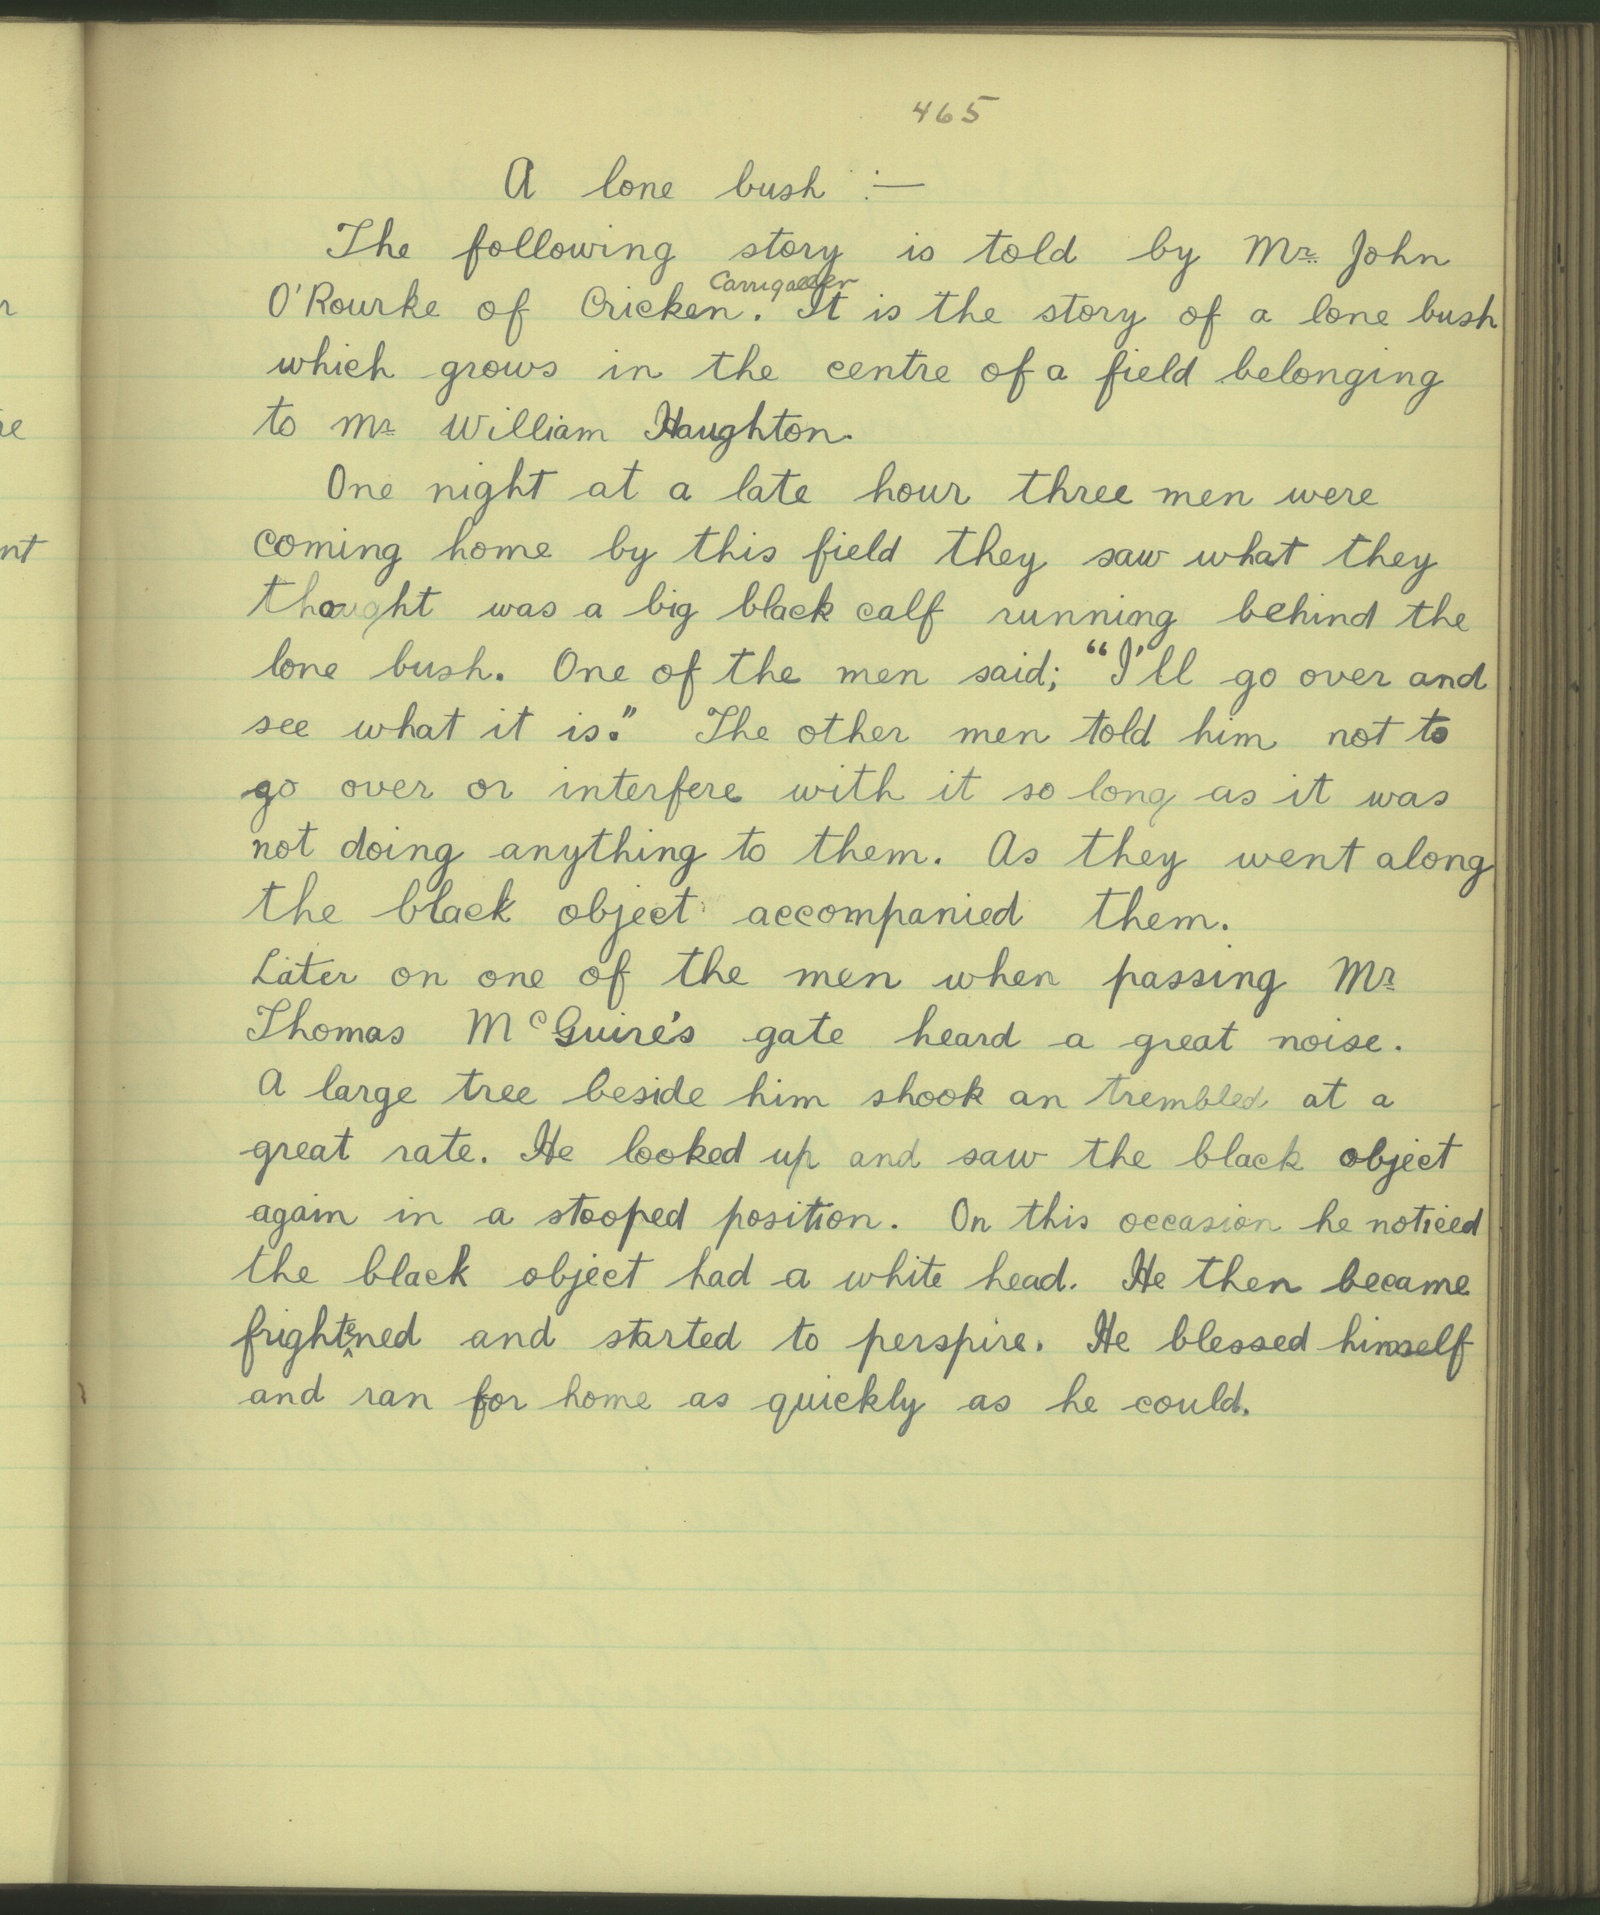 465
A lone bush :—
The following story is told by Mr. John
Carrigallen
O'Rourke of Cricken. It is the story of a lone bush
which grows in the centre of a field belonging
to Mr William Haughton.
One night at a late hour three men were
coming home by this field they saw what they
thought was a big black calf running behind the
lone bush. One of the men said; "I'll go over and
see what it is." The other men told him not to
go over or interfere with it so long as it was
not doing anything to them. As they went along
the black object accompanied them.
Later on one of the men when passing Mr
Thomas McGuire's gate heard a great noise.
A large tree beside him shook an trembled at a
great rate. He looked up and saw the black object
again in a stooped position. On this occasion he noticed
the black object had a white head. He then became
frightened and started to perspire. He blessed himself
and ran for home as quickly as he could.